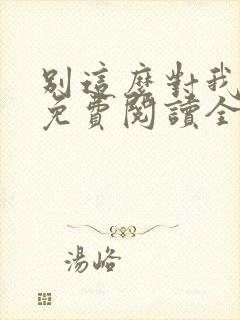 別這麼對我
免費閱讀全
湯峪